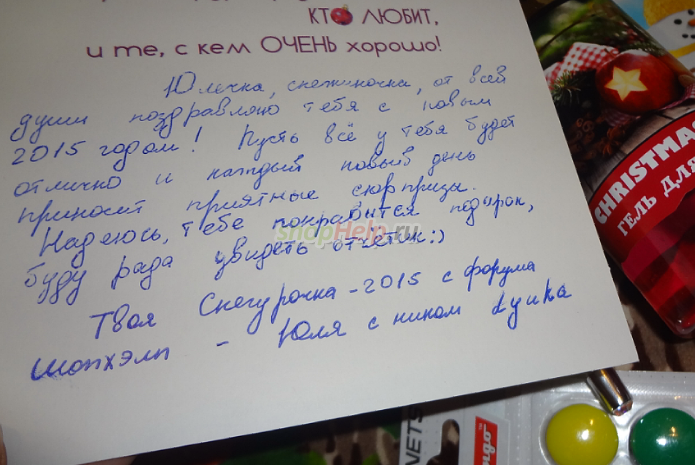 КТО ЛЮБИТ,
и те, с кем ОЧЕНЬ хорошо!
Юлечка, снежиночка, от всей
души поздравляю тебя с новым
2015 годом! Пусть всё у тебя будет
отлично и каждый новый день
приносит приятные сюрпризы.
Надеюсь, тебе понравится подарок,
буду рада увидеть отчётик:)
Твоя Снегурочка-2015 с форума
шопхэлп - Юля с ником
shopHelp.ru
CHRISTMAS
ГЕЛЬ ДЛЯ
NETS